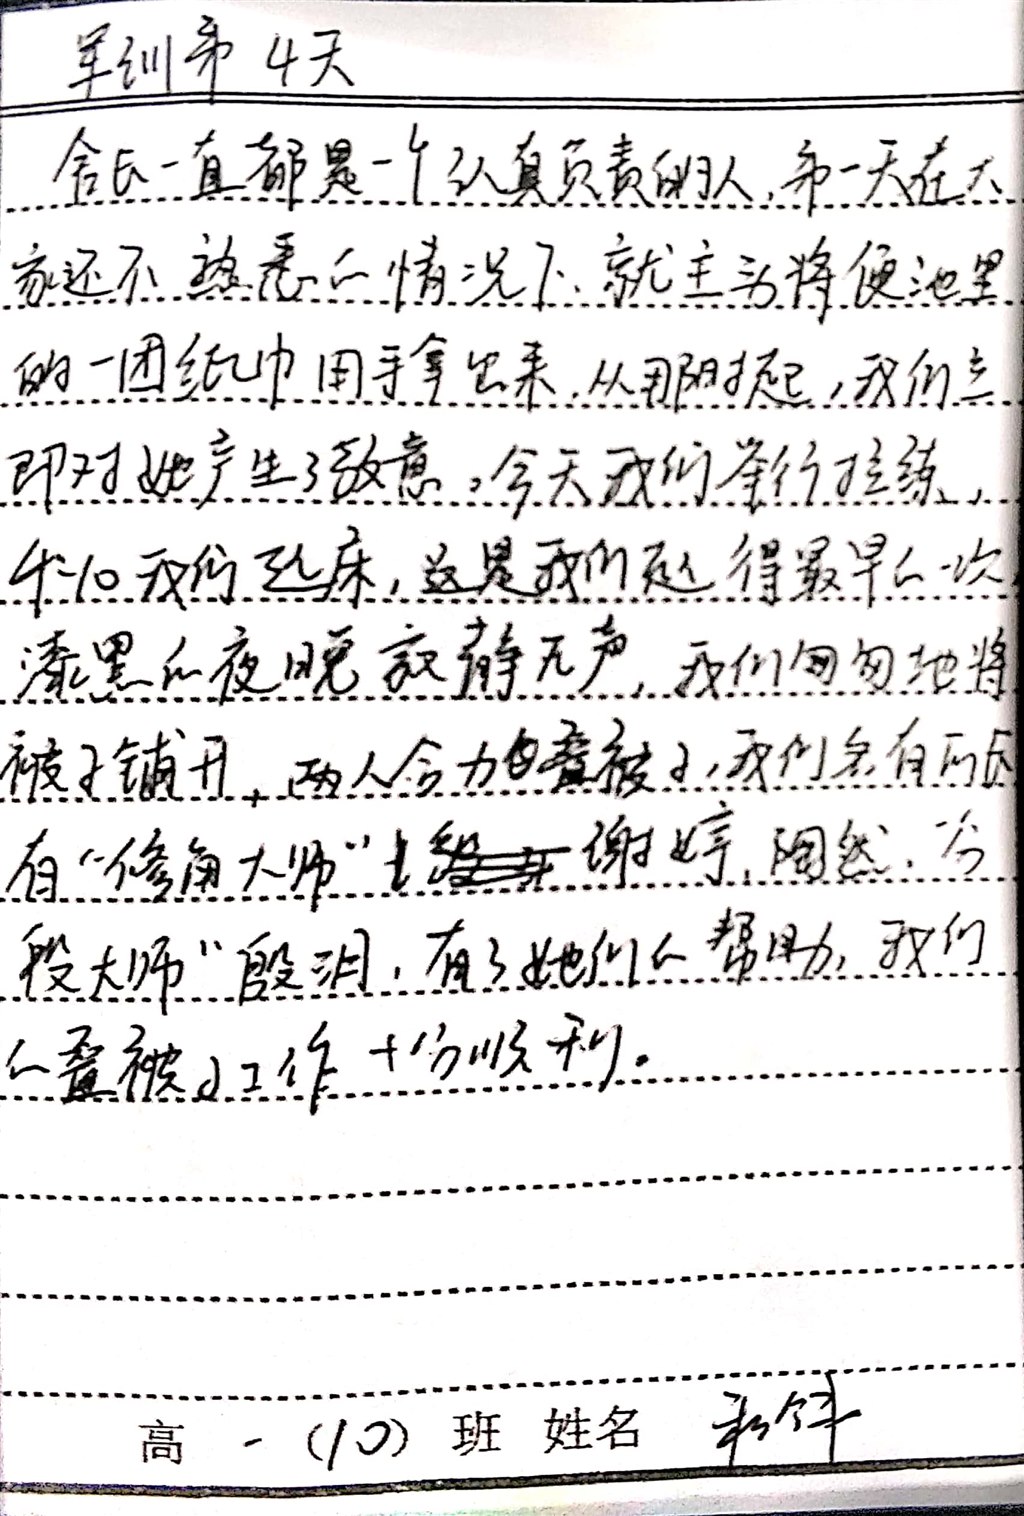 军训第4天
舍长一直都是一个认真负责的人,第一天在大
家还不熟悉的情况下、就主动将便池里
的一团纸巾用手拿出来,从那时起,我们立
即对她产生了敬意。今天我们举行拉练,
4:10我们起床,这是我们起得最早的一次,
漆黑的夜晚寂静无声,我们匆匆地将
被子铺开,两人合力叠被子,我们各有所长
有“修角大师”谢婷,陶然,“分
段大师”殷玥,有了她们的帮助,我们
的叠被子工作十分顺利。
高一(10)班 姓名